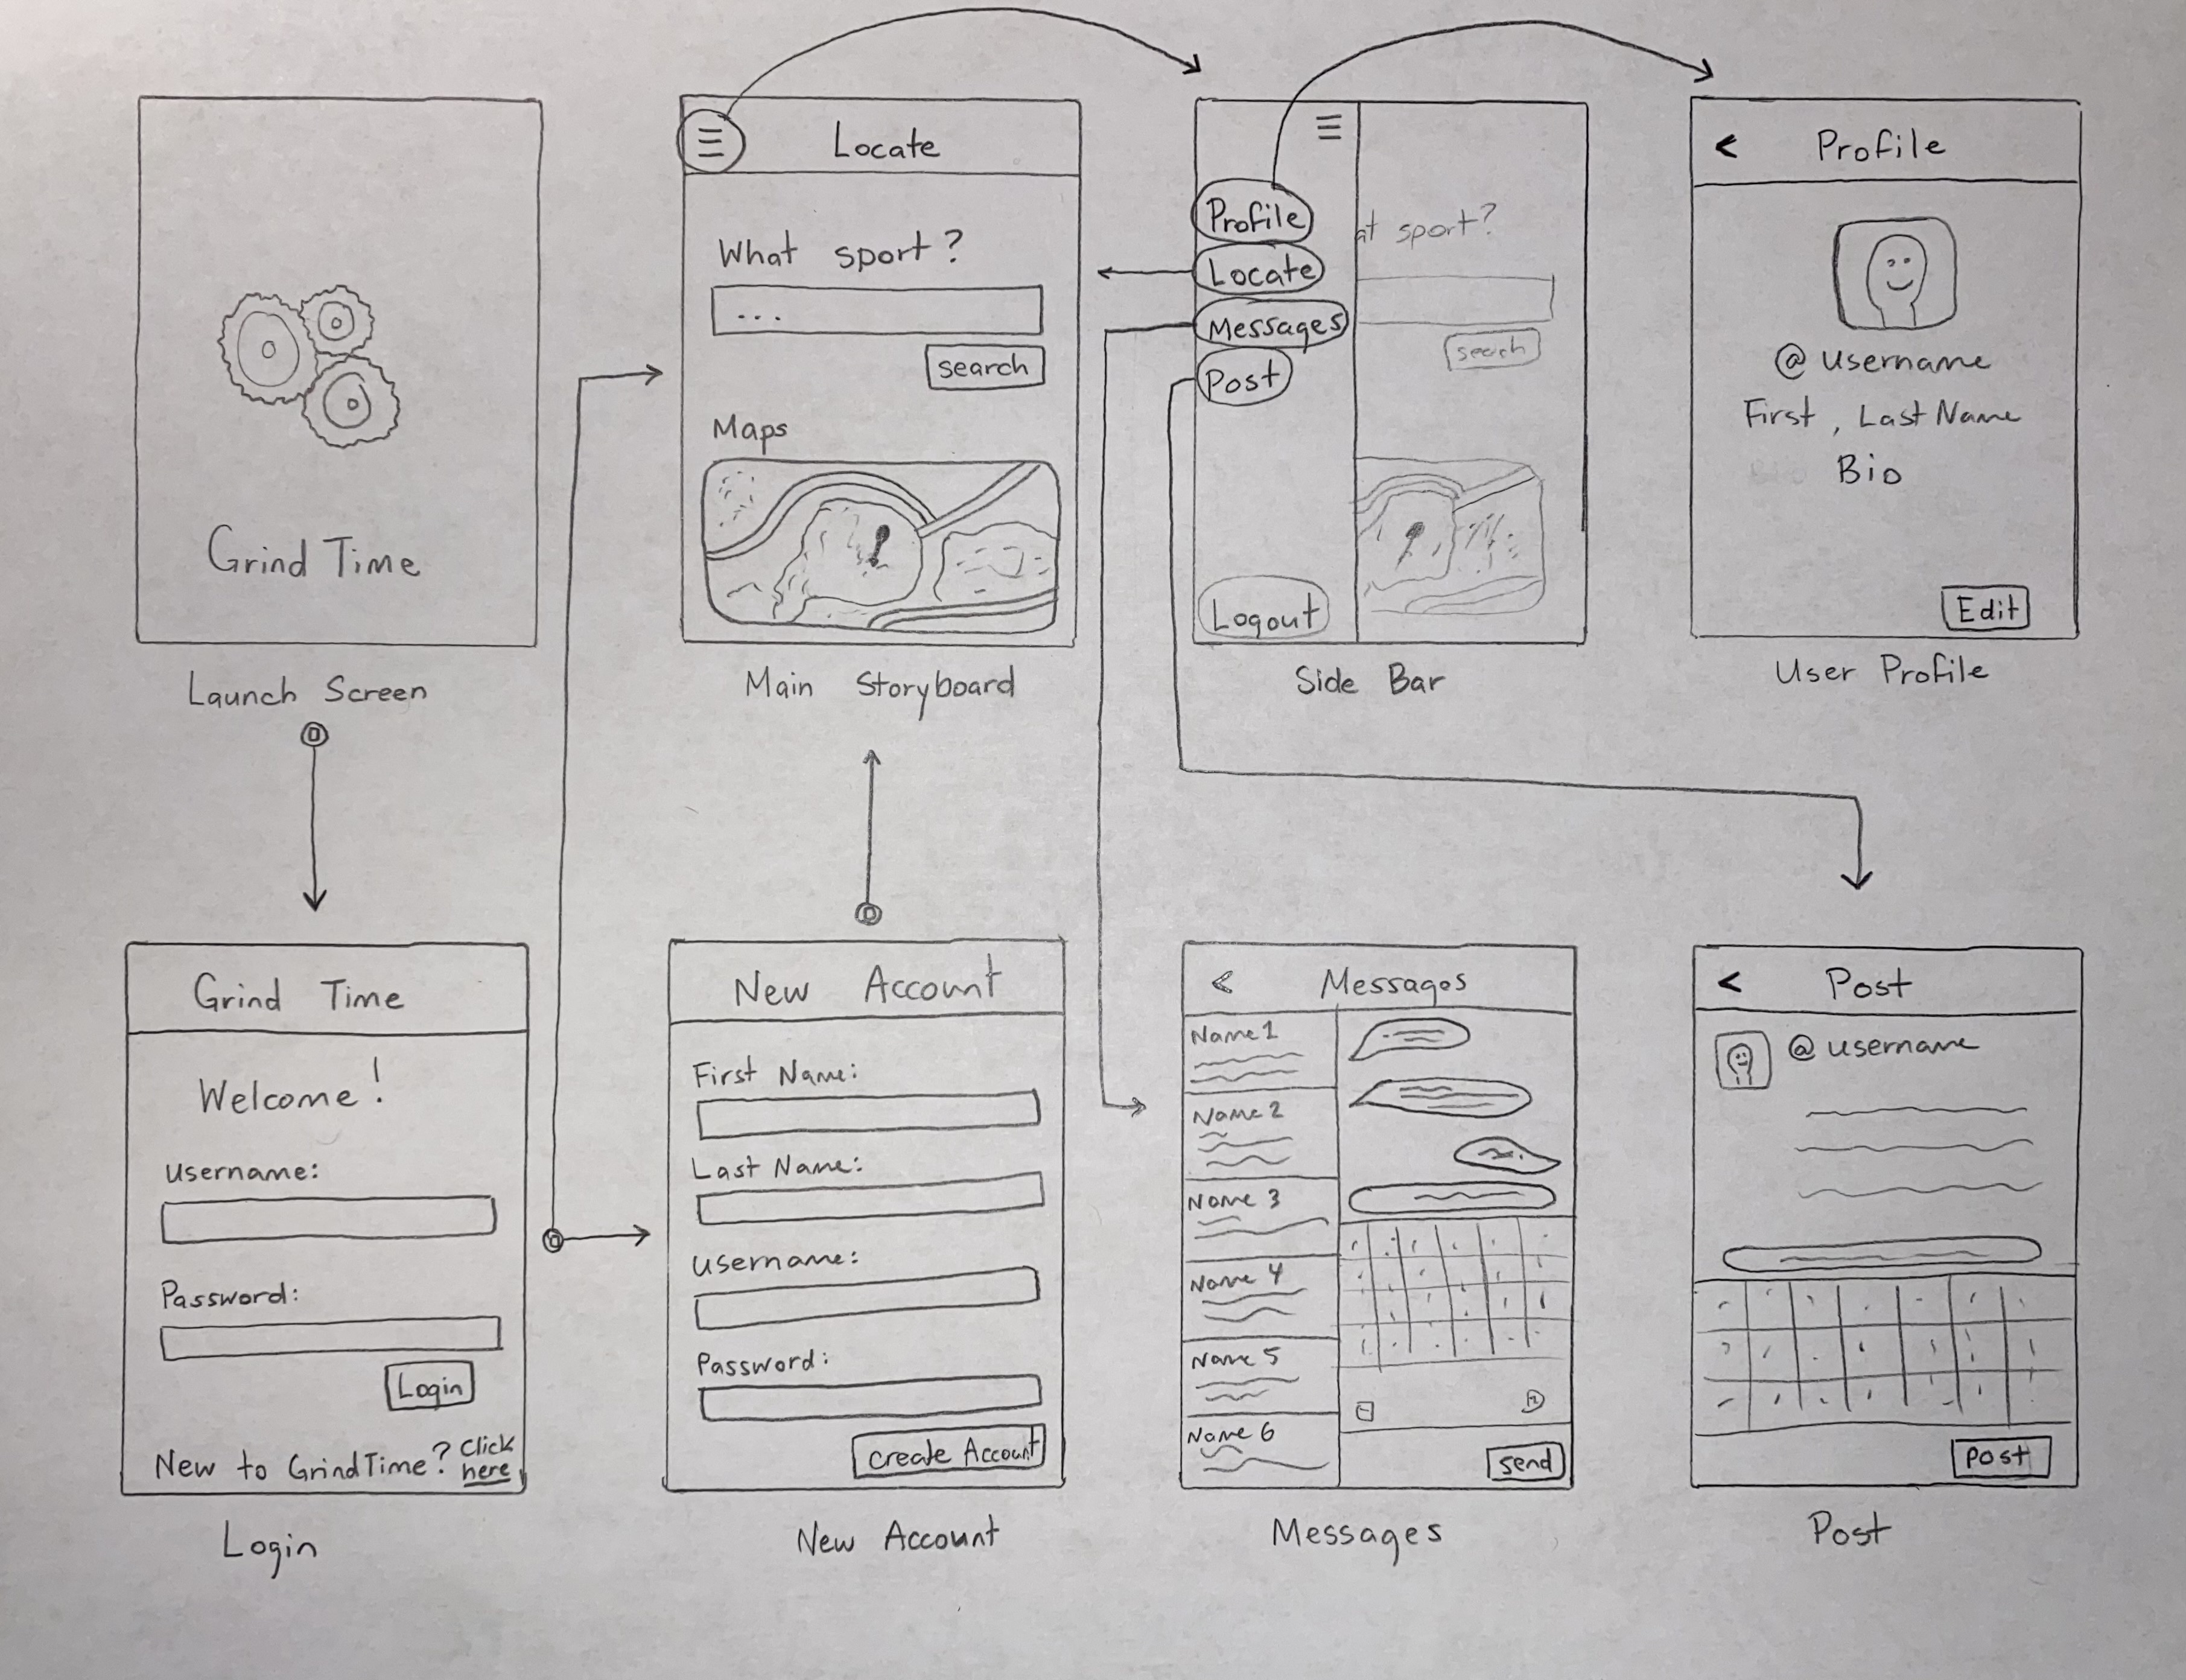 Grind Time
Launch Screen
Locate
What sport?
...
search
Maps
Main Storyboard
Profile
Locate
Messages
Post
Logout
at sport?
search
Side Bar
< Profile
@username
First, Last Name
Bio
Edit
User Profile
Grind Time
Welcome!
username:
Password:
Login
New to GrindTime? Click here
Login
New Account
First Name:
Last Name:
username:
Password:
create Account
New Account
< Messages
Name 1
Name 2
Name 3
Name 4
Name 5
Name 6
send
Messages
< Post
@username
Post
Post